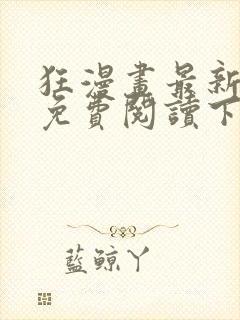 狂漫畫最新
免費閱讀下
藍鯨丫